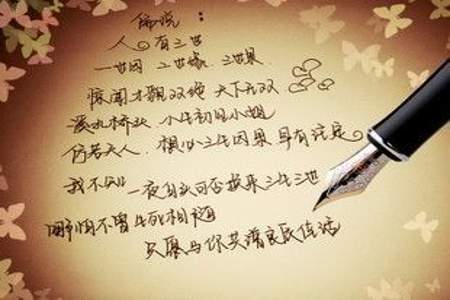 佛说：
人有三世
一世因 二世缘 三世果
惊闻才靓双绝 天下无双
溪水桥头 小生初见小姐
仿若天人 想必三生因果 早有注定
我不知 一夜白头可否换来三生三世
哪怕不曾生死相随
只愿与你共谱良辰佳话